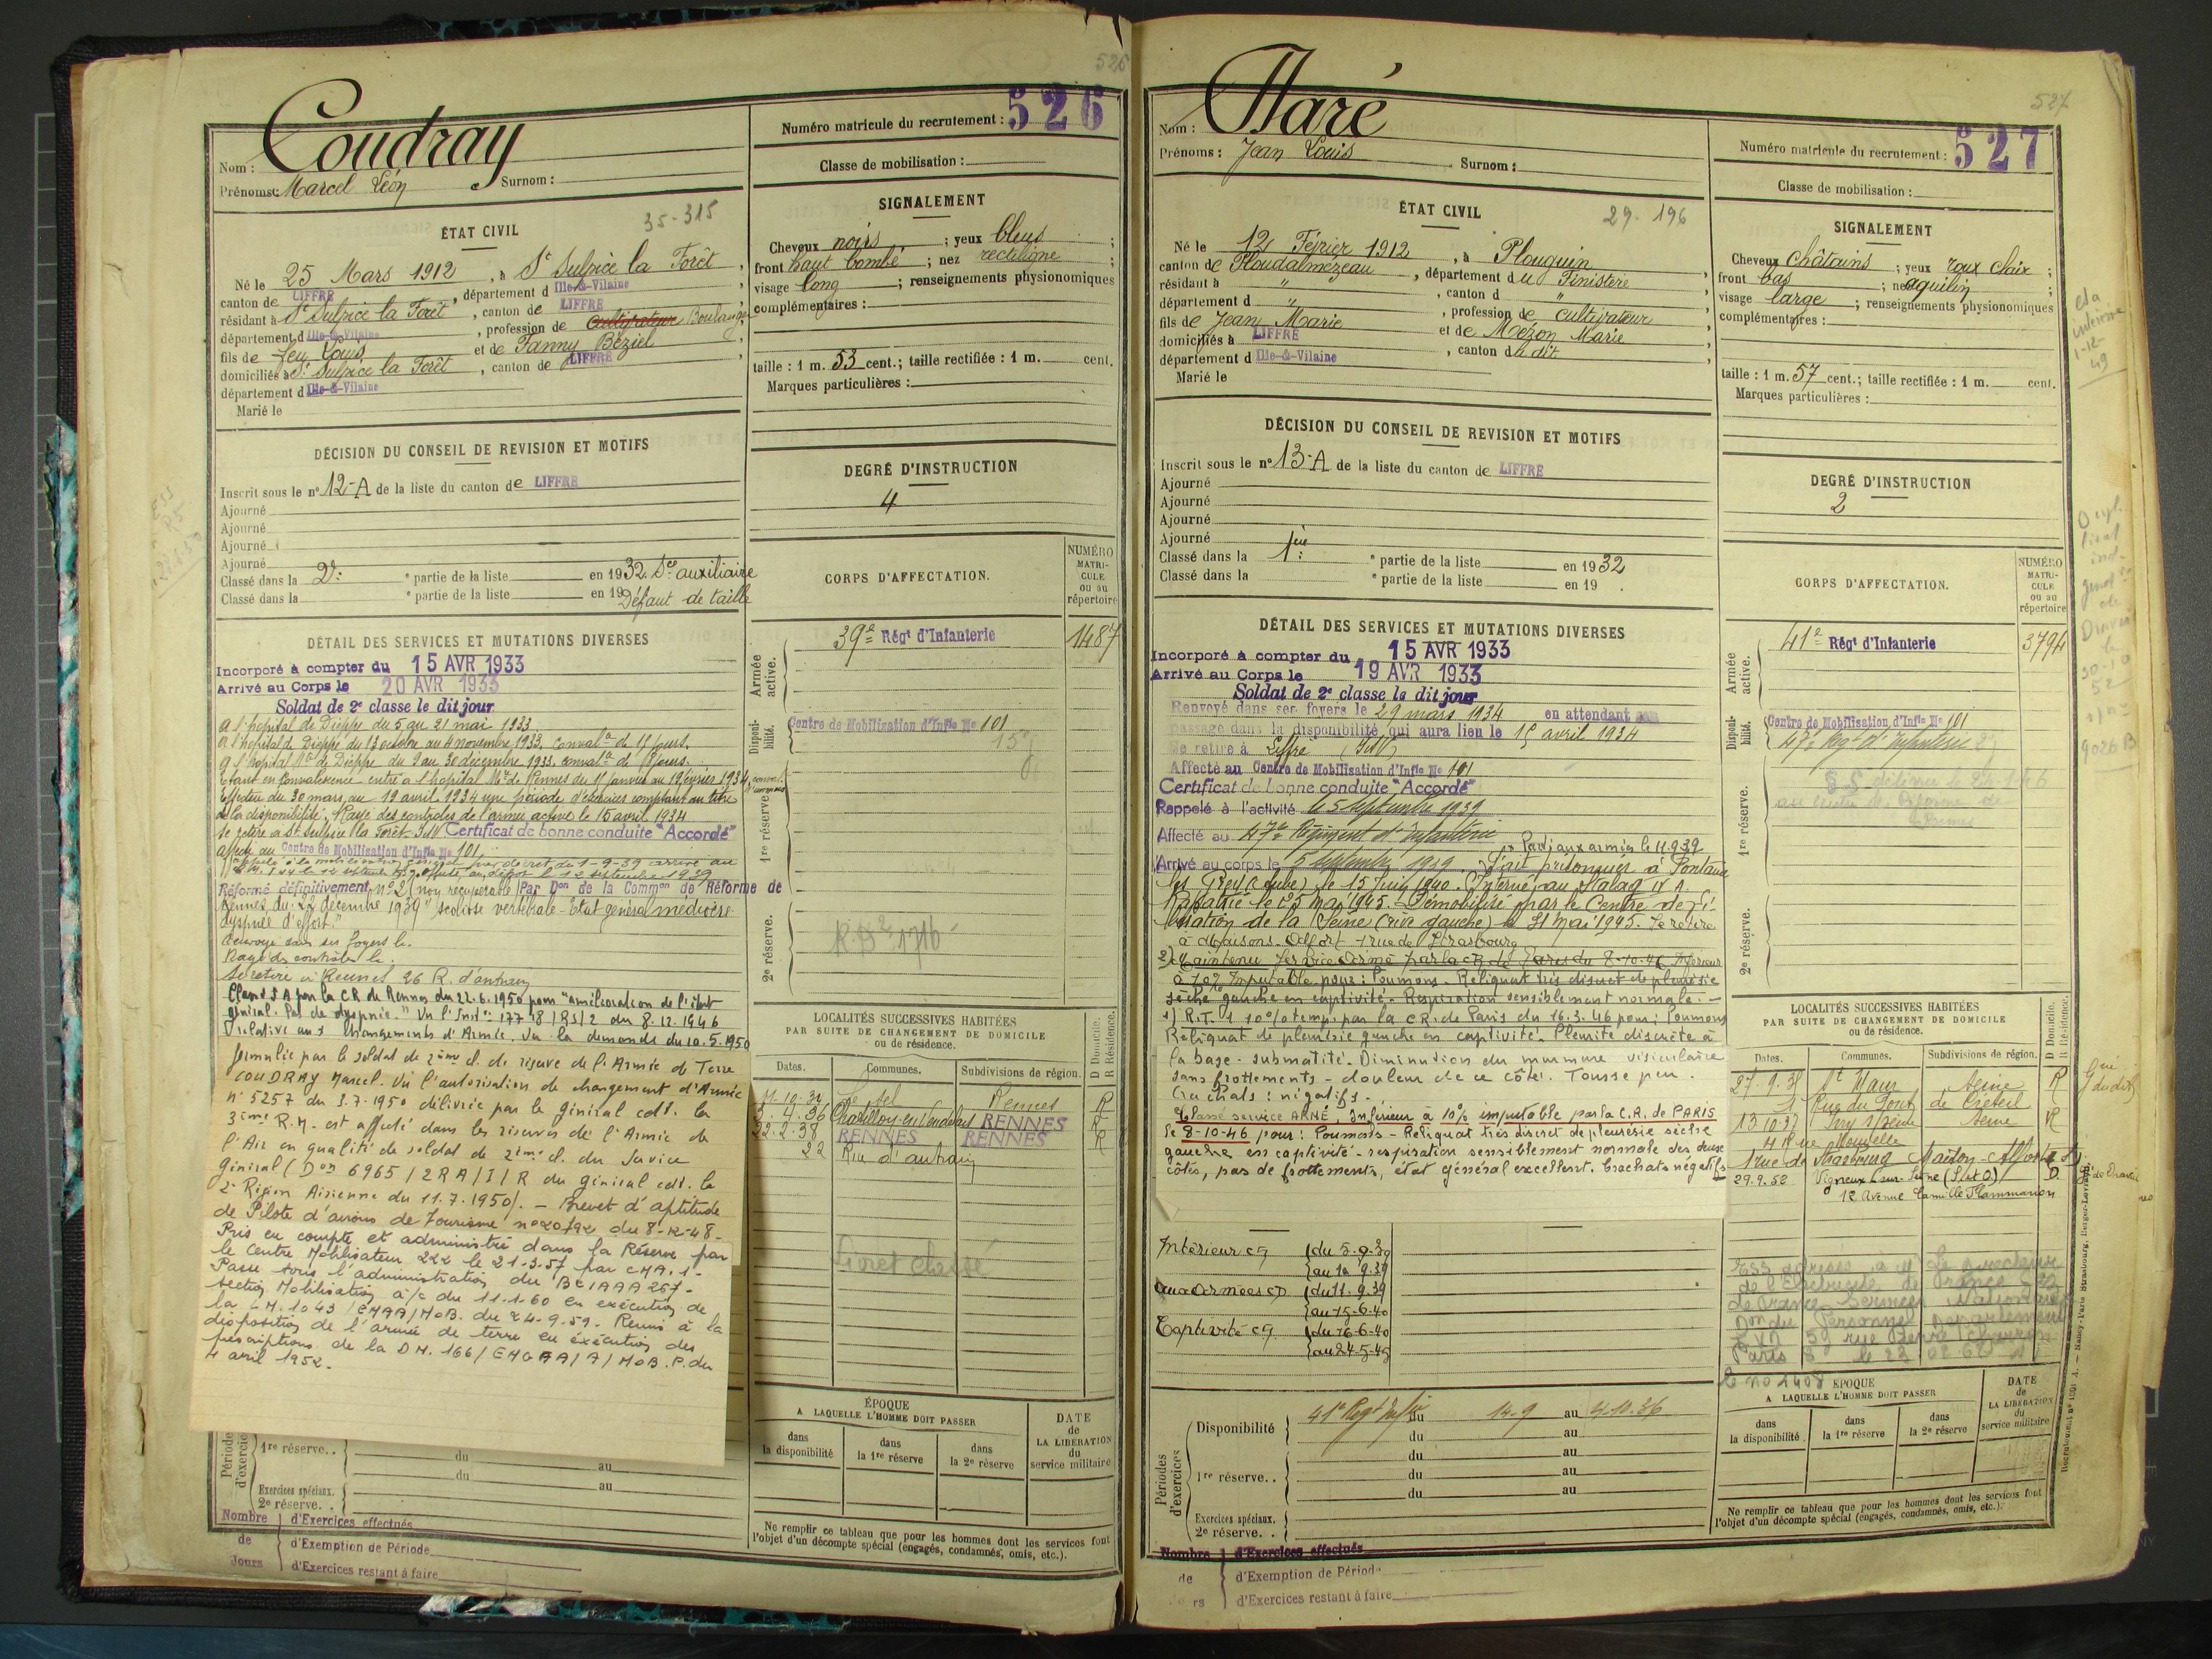 526
Coudray
Nom :
Prénoms : Marcel Léon Surnom :
Numéro matricule du recrutement : 526
Classe de mobilisation :
35-315
ÉTAT CIVIL
Né le 25 Mars 1912, à St Sulpice la Forêt,
canton de LIFFRÉ, département d Ille-&-Vilaine
résidant à St Sulpice la Forêt, canton de LIFFRÉ
département d Ille-&-Vilaine, profession de cultivateur Boulanger
fils de feu Louis et de Fanny Béziel
domiciliés à St Sulpice la Forêt, canton de LIFFRÉ
département d Ille-&-Vilaine
Marié le
SIGNALEMENT
Cheveux noirs ; yeux bleus ;
front haut bombé ; nez rectiligne ;
visage long ; renseignements physionomiques
complémentaires :
taille : 1 m. 53 cent.; taille rectifiée : 1 m. cent.
Marques particulières :
DÉCISION DU CONSEIL DE REVISION ET MOTIFS
Inscrit sous le n° 12-A de la liste du canton de LIFFRÉ
Ajourné
Ajourné
Ajourné
Ajourné
Classé dans la 2e partie de la liste en 1932. Sce auxiliaire
Classé dans la e partie de la liste en 19 Défaut de taille
DEGRÉ D'INSTRUCTION
4
DÉTAIL DES SERVICES ET MUTATIONS DIVERSES
Incorporé à compter du 15 AVR 1933
Arrivé au Corps le 20 AVR 1933
Soldat de 2e classe le dit jour
A l'hôpital de Dieppe du 5 au 21 mai 1933
A l'hôpital de Dieppe du 13 octobre au 4 novembre 1933. Conval
A l'hôpital de Dieppe du 9 au 30 décembre 1933. conval
Etant en Convalescence, entré à l'hôpital de Rennes du 11 janvier au 19 février 1934
Effectue du 30 mars au 19 avril 1934 une période d'exercices comptant au titre
de la disponibilité. Rayé des contrôles de l'armée active le 15 avril 1934
Se retire à St Sulpice la Forêt I&V Certificat de bonne conduite "Accordé"
Affecté au Centre de Mobilisation d'Infie No 101
Rappelé à la mobilisation générale par décret du 1-9-39 arrivé au
le 12 septembre 1939
Réformé définitivement n° 2 (non récupérable) Par Don de la Common de Réforme de
Rennes du 22 décembre 1939 "scoliose vertébrale - Etat général médiocre
dyspnée d'effort."
Renvoyé dans ses foyers le.
Rayé des contrôles le.
Se retire à Rennes 26 R. d'antrain
Classé S A par la CR de Rennes du 22.6.1950 pour "amélioration de l'état
général. Pas de dyspnée." Vu l'Inston 177 18/RS/2 du 8.12.1946
relative aux changements d'Armée. Vu la demande du 10.5.1950
formulée par le soldat de 2ème cl. de réserve de l'Armée de Terre
COUDRAY Marcel. Vu l'autorisation de changement d'Armée
n° 5257 du 3.7.1950 délivrée par le général cdt. la
3ème R.M. est affecté dans les réserves de l'Armée de
l'Air en qualité de soldat de 2ème cl. du Service
Général (Don 6965/2RA/I/R du général cdt. la
2e Région Aérienne du 11.7.1950). - Brevet d'aptitude
de Pilote d'avions de Tourisme n° 20792 du 8-12-48 -
Pris en compte et administré dans la Réserve par
le Centre Mobilisateur 222 le 21-3-57 par CMA.1 -
Passe sous l'administration du BCIAAA 267 -
section Mobilisation à/c du 11-1-60 en exécution de
la 1043/EMAA/MOB. du 24-9-59. Remis à la
disposition de l'armée de terre en exécution des
prescriptions de la DM. 166/EMGAA/A/MOB.P. du
4 avril 1952.
CORPS D'AFFECTATION.
NUMÉRO MATRICULE ou au répertoire
Armée active.
39e Régt d'Infanterie 1487
Disponibilité.
Centre de Mobilisation d'Infie No 101
1re réserve.
2e réserve.
LOCALITÉS SUCCESSIVES HABITÉES
PAR SUITE DE CHANGEMENT DE DOMICILE
ou de résidence.
D Domicile. R Résidence.
Dates. Communes. Subdivisions de région.
Rennes R
4.36 Chatillon en Vendelais RENNES R
22.2.38 RENNES RENNES R
22 Rue d'antrain
Livret classé
ÉPOQUE
A LAQUELLE L'HOMME DOIT PASSER
dans la disponibilité
dans la 1re réserve
dans la 2e réserve
DATE de LA LIBÉRATION du service militaire
Ne remplir ce tableau que pour les hommes dont les services font
l'objet d'un décompte spécial (engagés, condamnés, omis, etc.).
Périodes d'exercices
1re réserve.. du au
du au
Exercices spéciaux.
2e réserve..
Nombre de Jours
d'Exercices effectués
d'Exemption de Période
d'Exercices restant à faire
527
Haré
Nom :
Prénoms : Jean Louis Surnom :
Numéro matricule du recrutement : 527
Classe de mobilisation :
ÉTAT CIVIL
29. 196
Né le 12 Février 1912, à Plouguin
canton de Ploudalmézeau, département du Finistère
résidant à ", canton d "
département d ", profession de cultivateur
fils de Jean Marie et de Mézon Marie
domiciliés à LIFFRÉ, canton du dit
département d Ille-&-Vilaine
Marié le
SIGNALEMENT
Cheveux châtains ; yeux roux clair ;
front bas ; nez aquilin ;
visage large ; renseignements physionomiques
complémentaires :
taille : 1 m. 57 cent.; taille rectifiée : 1 m. cent.
Marques particulières :
DÉCISION DU CONSEIL DE REVISION ET MOTIFS
Inscrit sous le n° 13-A de la liste du canton de LIFFRÉ
Ajourné
Ajourné
Ajourné
Ajourné
Classé dans la 1ère partie de la liste en 1932
Classé dans la e partie de la liste en 19 .
DEGRÉ D'INSTRUCTION
2
DÉTAIL DES SERVICES ET MUTATIONS DIVERSES
Incorporé à compter du 15 AVR 1933
Arrivé au Corps le 19 AVR 1933
Soldat de 2e classe le dit jour
Renvoyé dans ses foyers le 29 mars 1934 en attendant son
passage dans la disponibilité qui aura lieu le 15 avril 1934
Se retire à Liffré (I&V)
Affecté au Centre de Mobilisation d'Infie No 101
Certificat de bonne conduite "Accordé"
Rappelé à l'activité le 5 Septembre 1939
Affecté au 47e Régiment d'Infanterie
Parti aux armées le 11.9.39
Arrivé au corps le 5 septembre 1939. Fait prisonnier à Fontaine
les Grey (Aube) le 15 Juin 1940. Interné au Stalag IV A.
Rapatrié le 25 Mai 1945. Démobilisé par le Centre de Li-
bération de la Seine (rive gauche) le 31 Mai 1945. Se retire
à Maisons-Alfort 1 rue de Strasbourg
2) Maintenu Service Armé par la CR de Paris du 8-10-46 Inférieur
à 10% Imputable pour : Poumons. Reliquat très discret de pleurésie
sèche gauche en captivité. Respiration sensiblement normale. -
1) R.T. 1 10% temp. par la CR. de Paris du 16.3.46 pour : Poumons
Reliquat de pleurésie gauche en captivité. Pleurite discrète à
la base - submatité. Diminution du murmure vésiculaire
sans frottements - douleur de ce côté. Tousse peu.
Crachats : négatifs.
Classé service ARMÉ, Inférieur à 10% imputable par la C.R. de PARIS
le 8-10-46 pour : Poumons - Reliquat très discret de pleurésie sèche
gauche en captivité - respiration sensiblement normale des deux
côtés, pas de frottements, état général excellent. Crachats négatifs
Intérieur CS du 5-9-39
au 10 9.39
aux Armées CD du 11.9.39
au 15-6-40
Captivité CS du 16-6-40
au 24-5-45
CORPS D'AFFECTATION.
NUMÉRO MATRICULE ou au répertoire
Armée active.
41e Régt d'Infanterie 3794
Disponibilité.
Centre de Mobilisation d'Infie No 101
47e Régt d'Infanterie
1re réserve.
2e réserve.
LOCALITÉS SUCCESSIVES HABITÉES
PAR SUITE DE CHANGEMENT DE DOMICILE
ou de résidence.
D Domicile. R Résidence.
Dates. Communes. Subdivisions de région.
27.9.35 St Maur Seine R
1 Rue du Pont de Créteil
13 10 37 Ivry s/Seine Seine R
1 rue de Strasbourg Maison-Alfort
29.9.52 Vigneux-sur-Seine (S et O) D
12 Avenue Camille Flammarion
ÉPOQUE
A LAQUELLE L'HOMME DOIT PASSER
dans la disponibilité
dans la 1re réserve
dans la 2e réserve
DATE de LA LIBÉRATION du service militaire
Ne remplir ce tableau que pour les hommes dont les services font
l'objet d'un décompte spécial (engagés, condamnés, omis, etc.).
Périodes d'exercices
Disponibilité 41e Regt Infie du 14-9 au 4-10-36
du au
du au
1re réserve.. du au
du au
Exercices spéciaux.
2e réserve..
Nombre de
d'Exercices effectués
d'Exemption de Période
d'Exercices restant à faire